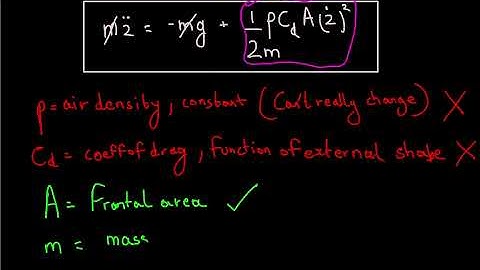 m̸z̈ = -m̸g + 1/2m ρCdA(ż)²
ρ = air density, constant (Can't really change) X
Cd = coeff of drag, function of external shape X
A = Frontal area ✓
m = mass